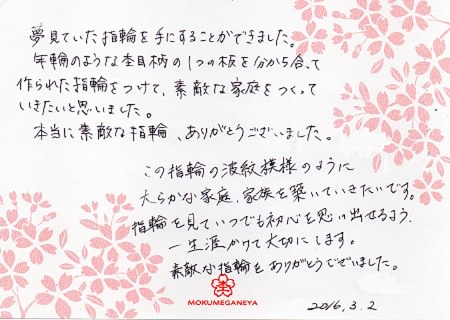 夢見ていた指輪を手にすることができました。
年輪のような杢目柄の1つの板を分かち合って
作られた指輪をつけて、素敵な家庭をつくって
いきたいと思いました。
本当に素敵な指輪、ありがとうございました。
この指輪の波紋模様のように
大らかな家庭、家族を築いていきたいです。
指輪を見ていつでも初心を思い出せるよう、
一生涯かけて大切にします。
素敵な指輪をありがとうございました。
杢
MOKUMEGANEYA
2016,3.2